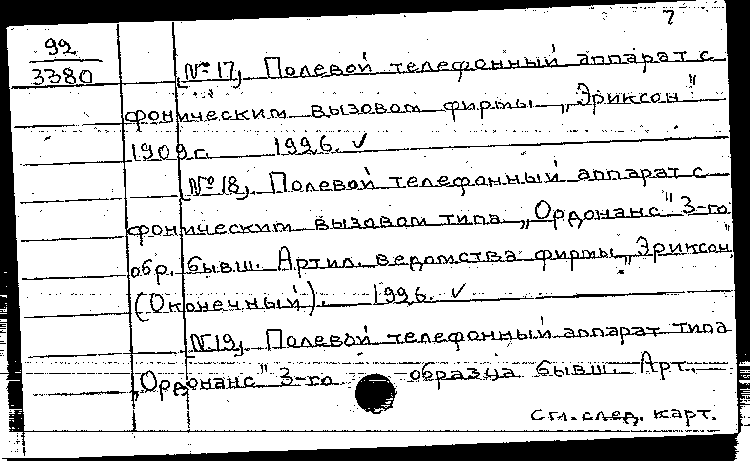 7
99
3380
№ 17, Полевой телефонный аппарат с
фоническим вызовом фирмы „Эриксон"
1909 г. 1996. ✓
№ 18, Полевой телефонный аппарат с
фоническим вызовом типа „Ордонанс" 3-го
обр. бывш. Артил. ведомства фирмы „Эриксон"
(Оконечный). 1996. ✓
№ 19, Полевой телефонный аппарат типа
„Ордонанс" 3-го образца бывш. Арт.
см. след. карт.